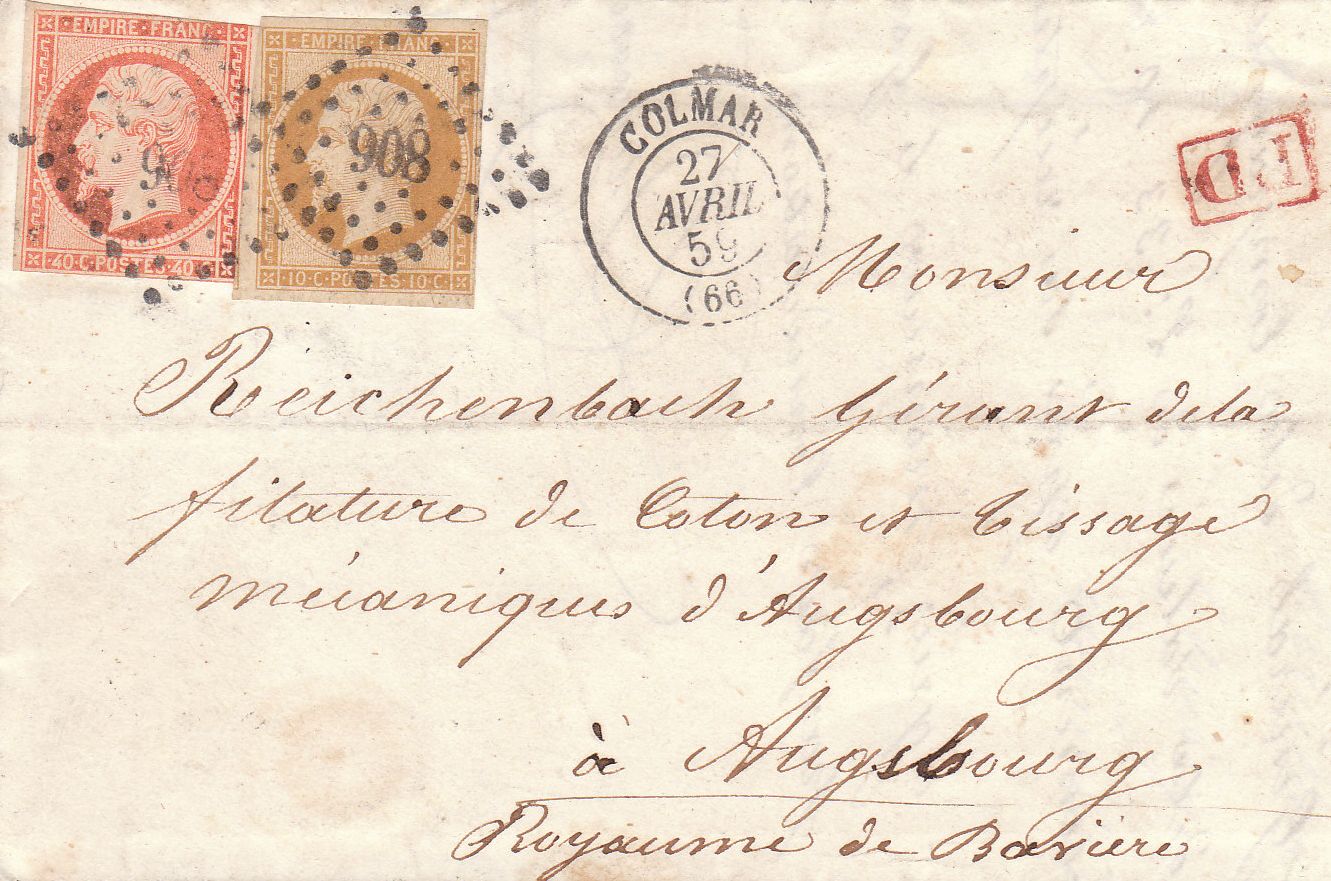 EMPIRE·FRANC·
40·C·POSTES·40·C
EMPIRE·FRANC·
908
10·C·POSTES·10·C·
COLMAR
27
AVRIL
59
(66)
PD
Monsieur
Reichenbach Gérant de la
filature de Coton et Tissage
mécaniques d'Augsbourg
à Augsbourg
Royaume de Bavière